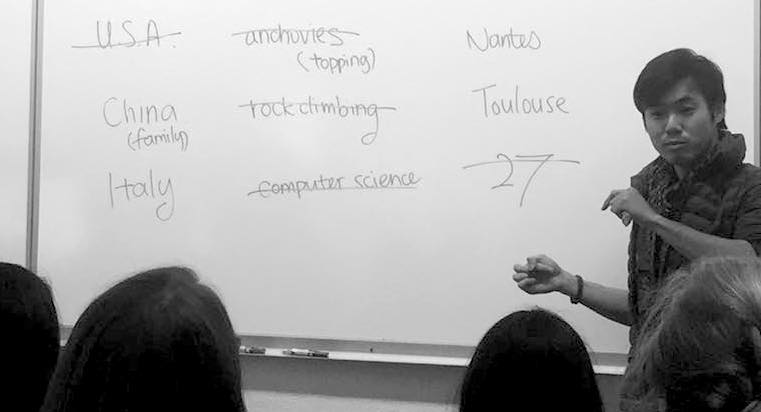 U.S.A.
anchovies
(topping)
Nantes
China
(family)
rock climbing
Toulouse
Italy
computer science
27